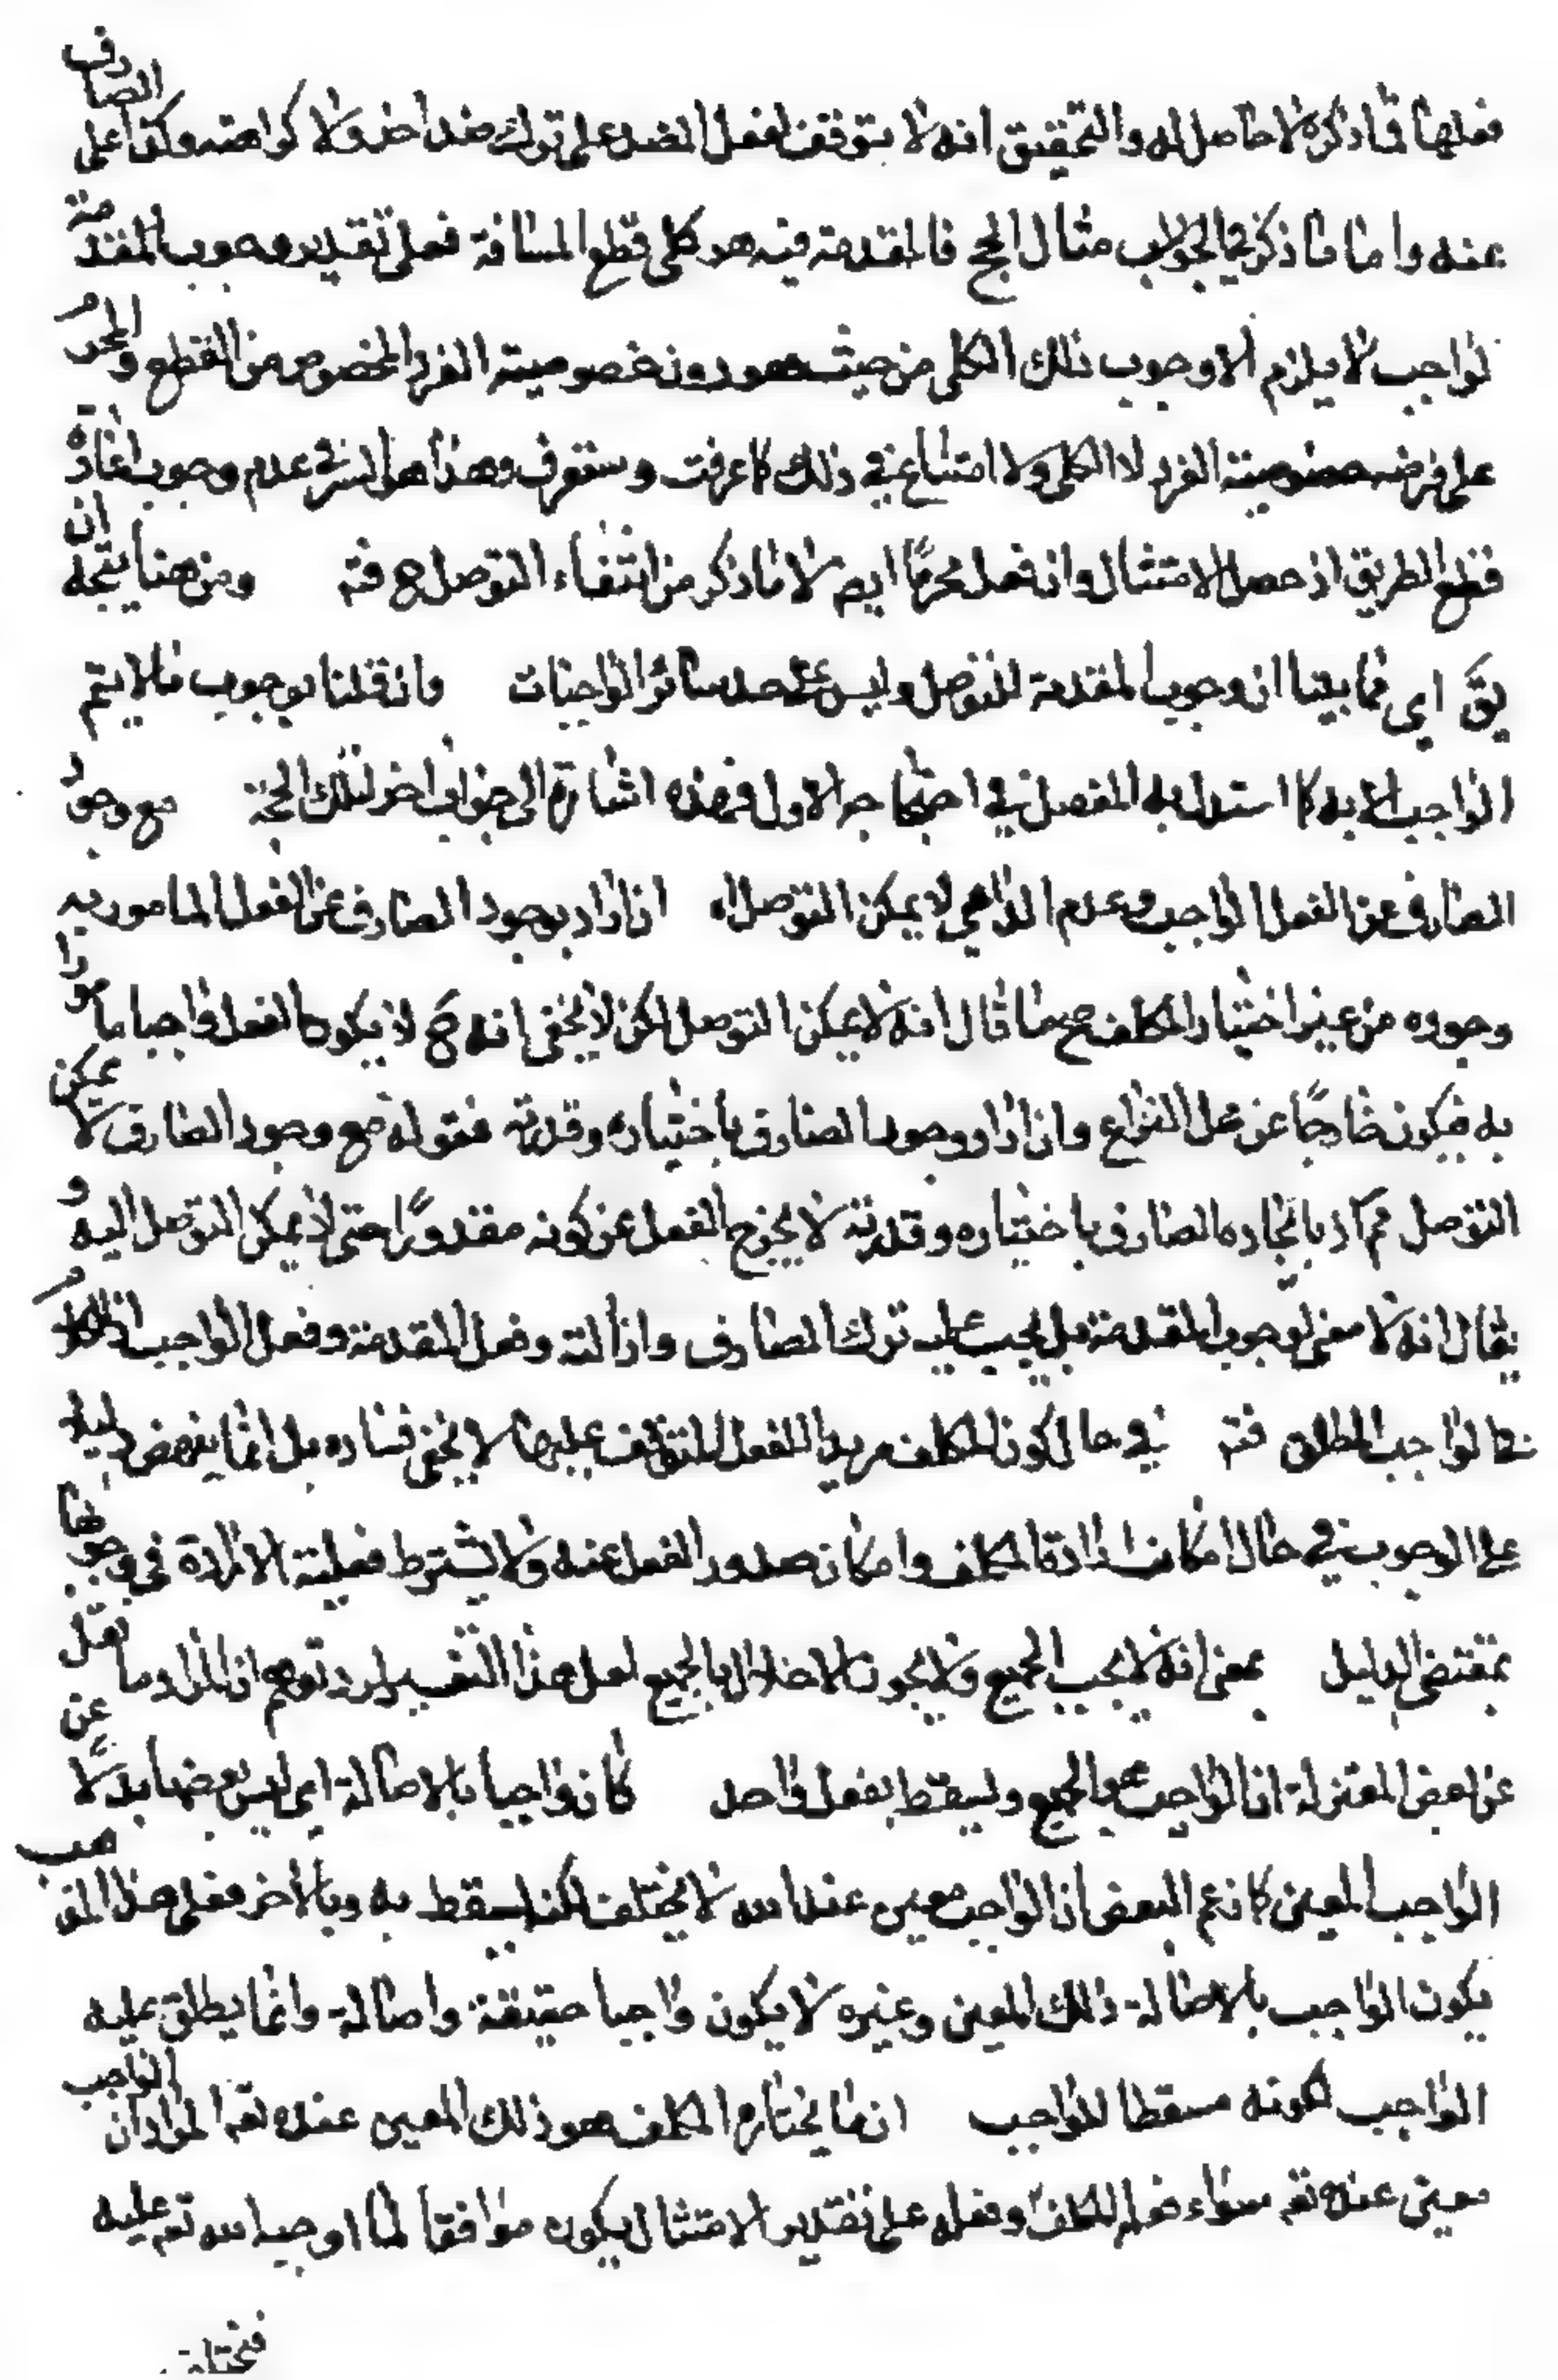 فعلها فما ذكره لا حاصل له والتحقيق انه لا يتوقف فعل الضد على ترك ضد اخر ولا كراهته وكذا على الصارف
عنه واما ما ذكر في الجواب مثال الحج فالمقدمة فيه هو كلي قطع المسافة فعلى تقدير وجوب المقدمة
لواجب لا يلزم الا وجوب ذلك الكلي من حيث هو دون خصوصية الفرد المخصوص من القطع والمحرم
على فرضه خصوصية الفرد لا الكلي ولا امتناع في ذلك كما عرفت وستعرف وهذا هو السر في عدم وجوب اعادة
قطع الطريق اذ حصل الامتثال وان فعل محرمًا ايضا لا ما ذكر من انتفاء التوصل ح فتم ومن هنا يتجه ان
يقَ اى مما بينا ان وجوب المقدمة للتوصل وليس على حد سائر الواجبات وان قلنا بوجوب ما لا يتم
الواجب الا به كما استدل به المفصل في احتجاجه الاول فهذه اشارة الى جواب اخر لتلك الحجة مع وجود
الصارف عن الفعل الواجب وعدم الداعي لا يمكن التوصل اه ان اراد بوجود الصارف عن الفعل المامور به
وجوده من غير اختيار المكلف صح ما قال انه لا يمكن التوصل لكن لا يخفى انه ح لا يكون الفعل واجبا مامورا
به فيكون خارجًا عن محل النزاع وان اراد وجود الصارف باختياره وقدرته فقوله مع وجود الصارف لا يمكن
التوصل مم اذ بايجاده الصارف باختياره وقدرته لا يخرج الفعل عن كونه مقدورًا حتى لا يمكن التوصل اليه و
يقال انه لا معنى لوجوب المقدمة بل يجب عليه ترك الصارف وازالته وفعل المقدمة وفعل الواجب اذ الكلام
في الواجب المطلق فتم في حال كون المكلف مريدا للفعل المتوقف عليها لا يخفى فساده بل انما ينهض دليلا
على الوجوب في حال امكان ارادة المكلف وامكان صدور الفعل عنه ولا يشترط فعلية الارادة في وجوبها
بمقتضى الدليل بمعنى انه لا يجب الجميع ولا يجوز الاخلال بالجميع لعل هذا التفسير لرد توهم ان المراد ما نقل
عن بعض المعتزلة ان الواجب هو الجميع ويسقط بفعل واحد كان واجبا بالاصالة اى ليس بعضها بدلًا عن
الواجب المعين كما زعم البعض ان الواجب معين عند الله لا يختلف لكنه يسقط به وبالاخر فعلى هذا المذهب
يكون الواجب بالاصالة ذلك المعين وغيره لا يكون واجبا حقيقة واصالة وانما يطلق عليه
الواجب لكونه مسقطا للواجب ان ما يختاره المكلف هو ذلك المعين عنده تعه المراد ان الواجب
معين عنده تعه سواء فعله المكلف وفعله على تقدير الامتثال يكون موافقا لما اوجبه الله تعه عليه
فيختلف